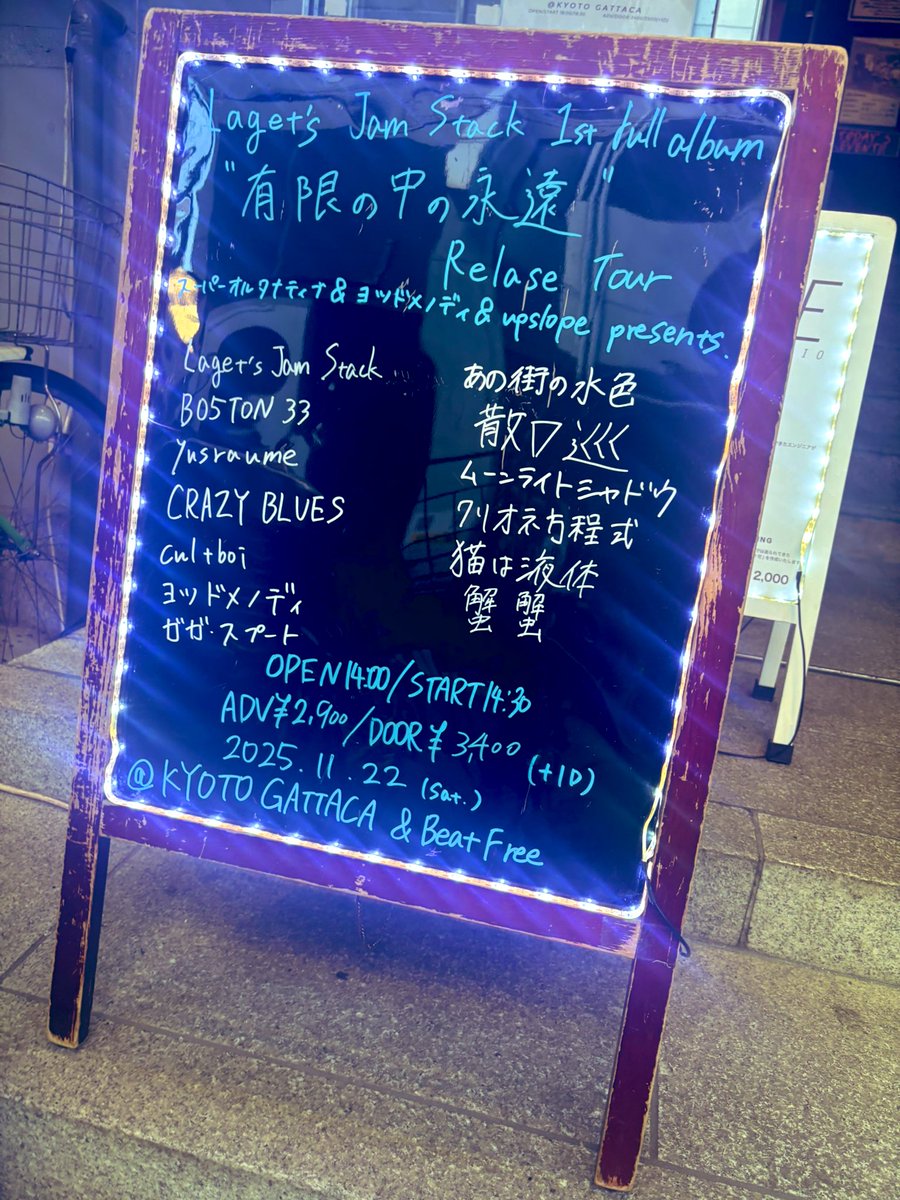 @KYOTO GATTACA
Laget's Jam Stack 1st full album
"有限の中の永遠"
Relase Tour
スーパーオルタナティナ & ヨッドメノディ & upslope presents.
Laget's Jam Stack
BO5TON 33
yusraume
CRAZY BLUES
cultboi
ヨッドメノディ
ゼガ・スプート
あの街の水色
散口巡
ムーンライトシャドウ
クリオネ方程式
猫は液体
蟹蟹
OPEN 14:00/START 14:30
ADV ¥2,900/DOOR ¥3,400
(+1D)
2025.11.22 (Sat.)
@KYOTO GATTACA & BeatFree
2,000